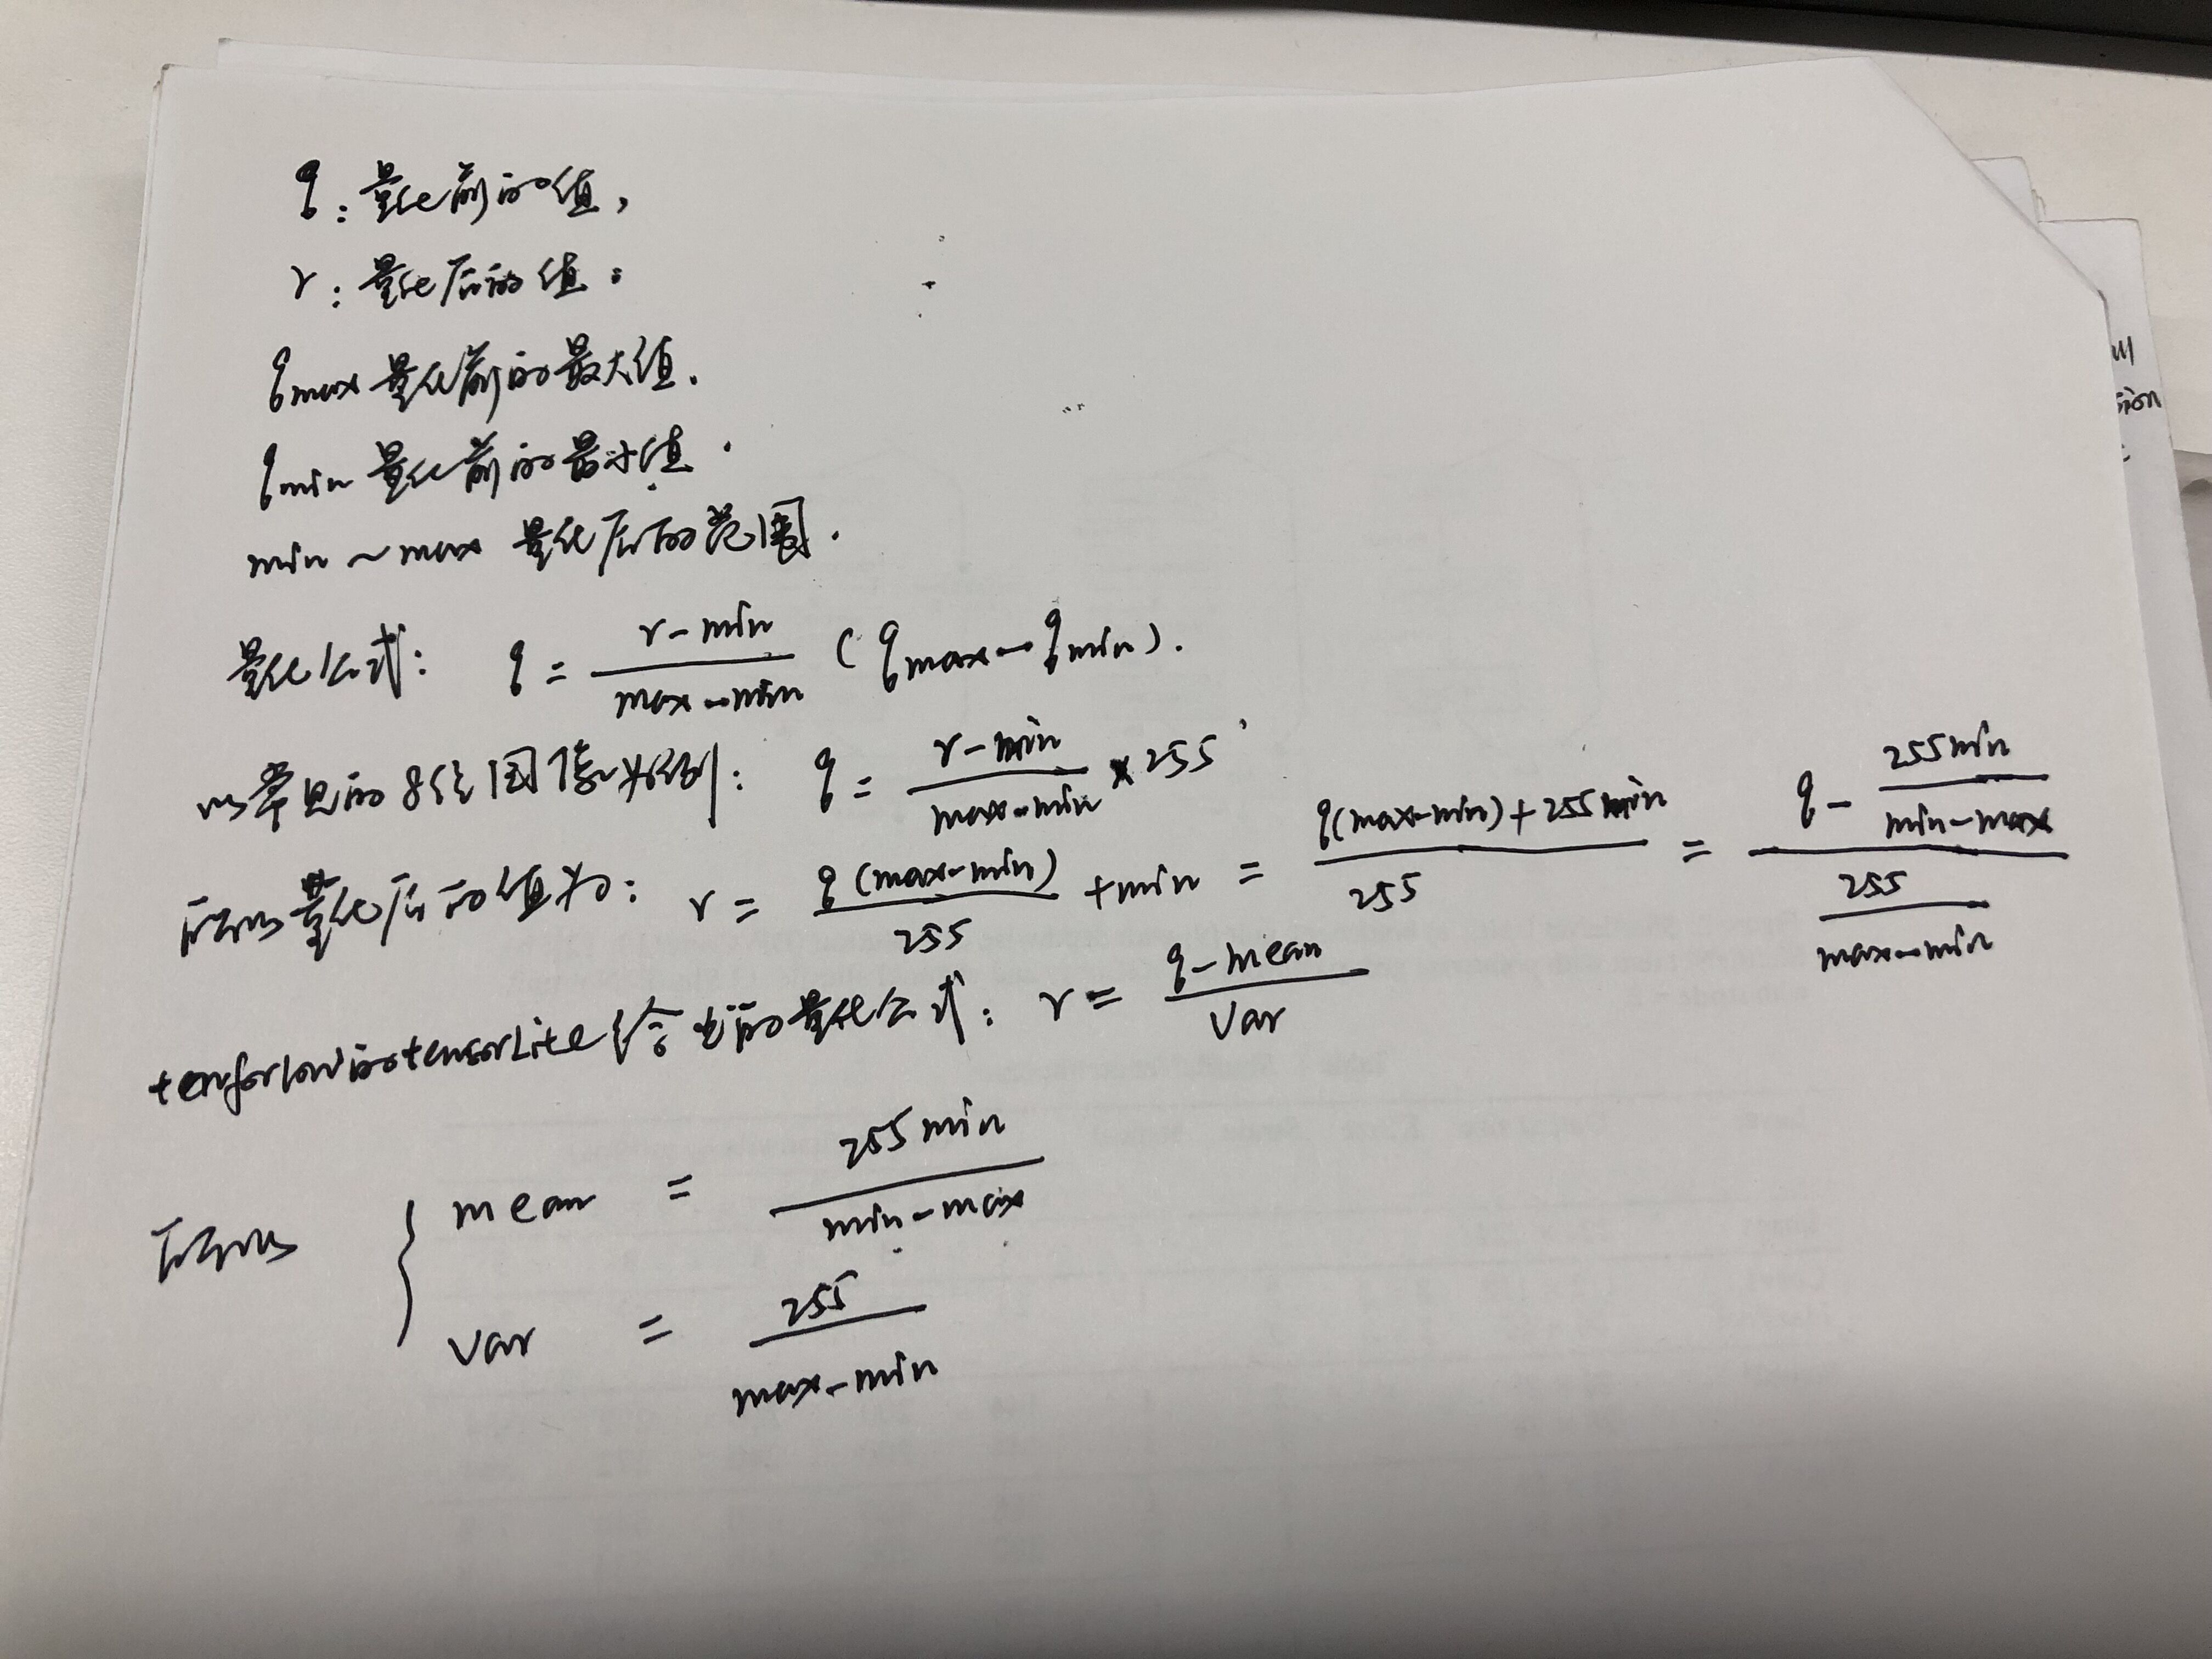 q：量化前的值，
r：量化后的值。
qmax 量化前的最大值.
qmin 量化前的最小值.
min ~ max 量化后的范围.
量化公式： q = \frac{r-min}{max-min} (qmax-qmin).
以常见的8位图像为例： q = \frac{r-min}{max-min} × 255
所以量化后的值为： r = \frac{q(max-min)}{255} + min = \frac{q(max-min)+255min}{255} = \frac{q-\frac{255min}{min-max}}{\frac{255}{max-min}}
tenforlow的tensorLite给出的量化公式： r = \frac{q-mean}{var}
所以 { mean = \frac{255min}{min-max}
var = \frac{255}{max-min}
sion